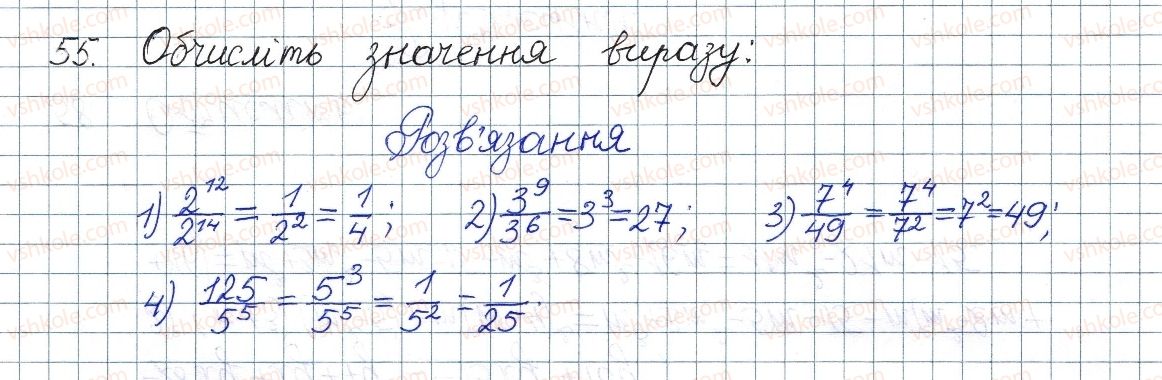 55. Обчисліть значення виразу:
Розв'язання
1) 2^12/2^14 = 1/2^2 = 1/4; 2) 3^9/3^6 = 3^3 = 27; 3) 7^4/49 = 7^4/7^2 = 7^2 = 49;
4) 125/5^5 = 5^3/5^5 = 1/5^2 = 1/25.